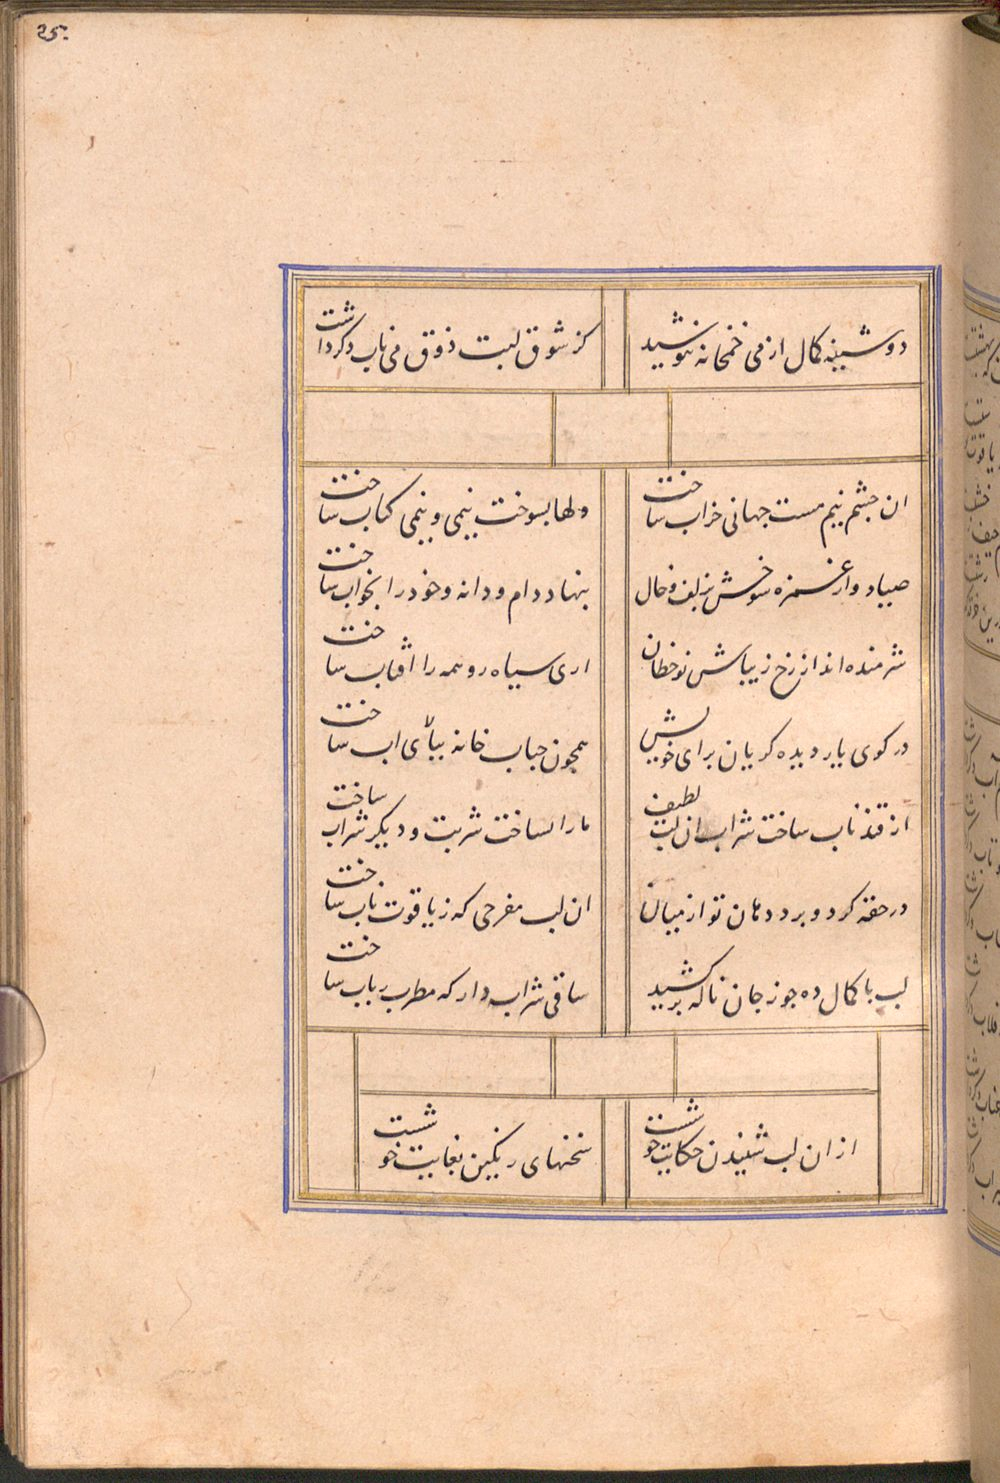 25.
دوشینه کمال از می خمخانه ننوشید
کز شوق لبت ذوق می ناب دکر داشت
ان چشم نیم مست جهانی خراب ساخت
دلها بسوخت نیمی و نیمی کباب ساخت
صیاد وار غمزه شوخش بزلف و خال
بنهاد دام و دانه و خود را بخواب ساخت
شرمنده اند از رخ زیباش نوخطان
اری سیاه رو همه را افتاب ساخت
در کوی یار دیده کریان برای خویش
همچون حباب خانه ببالای اب ساخت
از قند ناب ساخت شراب ان لب لطیف
ما را نساخت شربت و دیکر شراب ساخت
در حقه کرد و برد دهان تو از میان
ان لب مفرحی که ز یاقوت ناب ساخت
لب با کمال ده چو نه جان ناله برکشید
ساقی شراب دار که مطرب رباب ساخت
از ان لب شنیدن حکایت خوشست
سخنهای رنکین بغایت خوشست